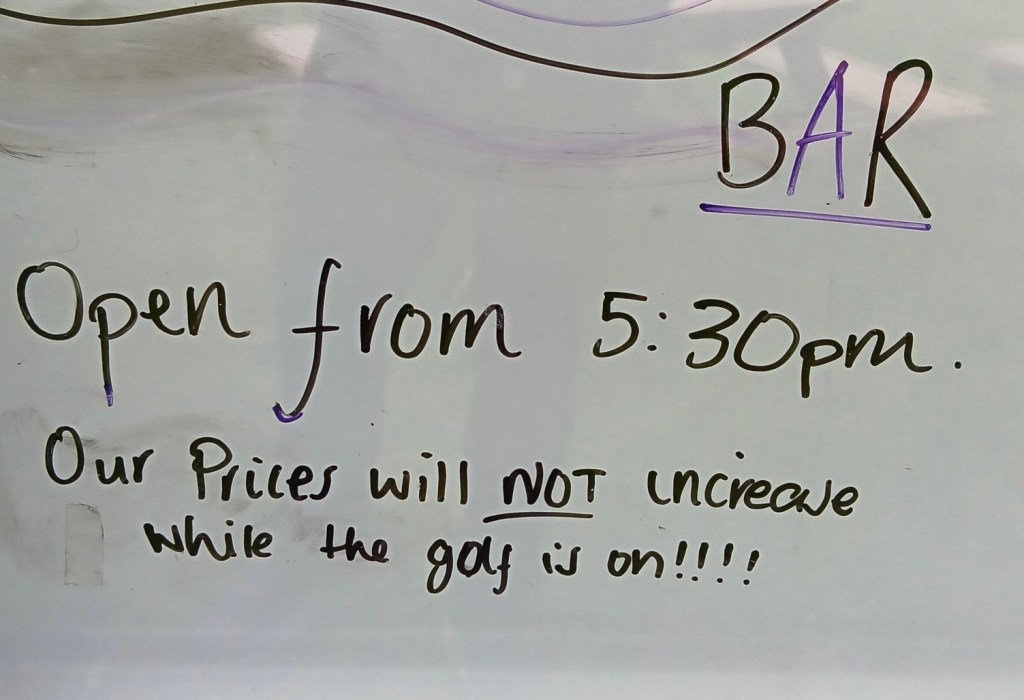 BAR
Open from 5:30pm.
Our Prices will NOT increase
while the golf is on!!!!